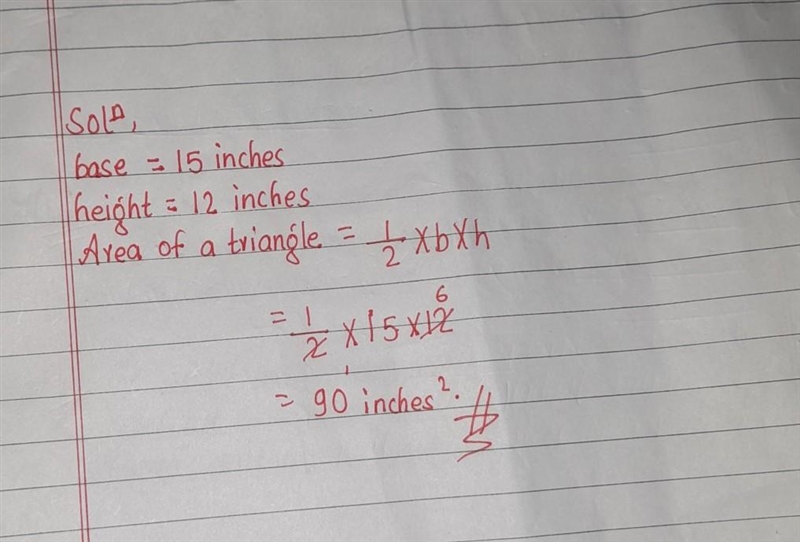 Solⁿ,
base = 15 inches
height = 12 inches
Area of a triangle = 1/2 × b × h
= 1/2 × 15 × 12 6
1
= 90 inches².